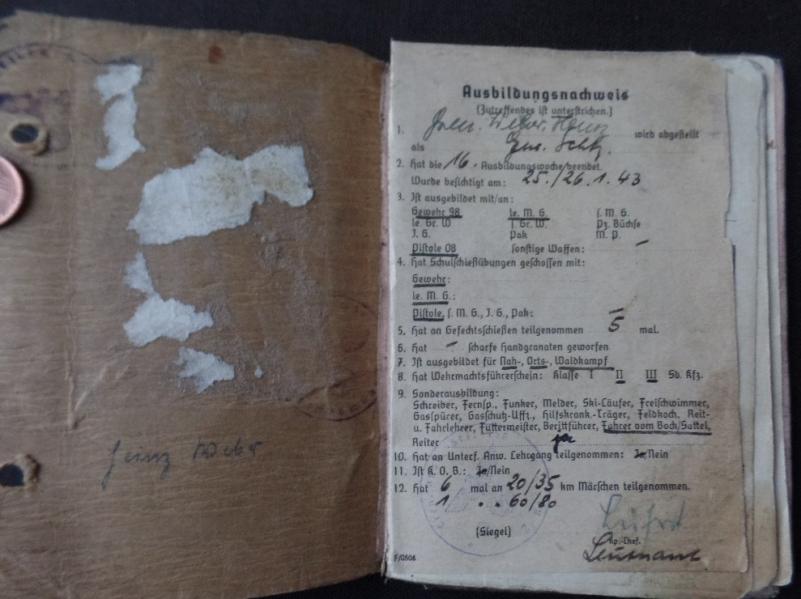 Ausbildungsnachweis
(Zutreffendes ist unterstrichen.)
1. wird abgestellt
als Schtz.
2. Hat die 16. Ausbildungswoche beendet.
Wurde besichtigt am: 25./26.1.43
3. Ist ausgebildet mit/an:
Gewehr 98 le. M. G. s. M. G.
le. Gr. W s. Gr. W. Pz. Büchse
J. G. Pak M. P.
Pistole 08 sonstige Waffen: —
4. Hat Schulschießübungen geschossen mit:
Gewehr:
le. M. G.:
Pistole, s. M. G., J. G., Pak: —
5. Hat an Gefechtsschießen teilgenommen 5 mal.
6. Hat — scharfe Handgranaten geworfen
7. Ist ausgebildet für Nah-, Orts-, Waldkampf
8. Hat Wehrmachtsführerschein: Klasse I II III Sd. Kfz.
9. Sonderausbildung:
Schreiber, Fernsp., Funker, Melder, Ski-Läufer, Freischwimmer,
Gasspürer, Gasschutz-Uffz., Hilfskrank.-Träger, Feldkoch, Reit-
u. Fahrlehrer, Futtermeister, Berittführer, Fahrer vom Bock/Sattel,
Reiter
10. Hat an Unterf. Anw. Lehrgang teilgenommen: Ja/Nein
11. Ist K. O. B.: Ja/Nein
12. Hat 6 mal an 20/35 km Märschen teilgenommen.
1 " " 60/80
(Siegel)
Kp.-Chef.
Leutnant
F/0506
Heinz Weber